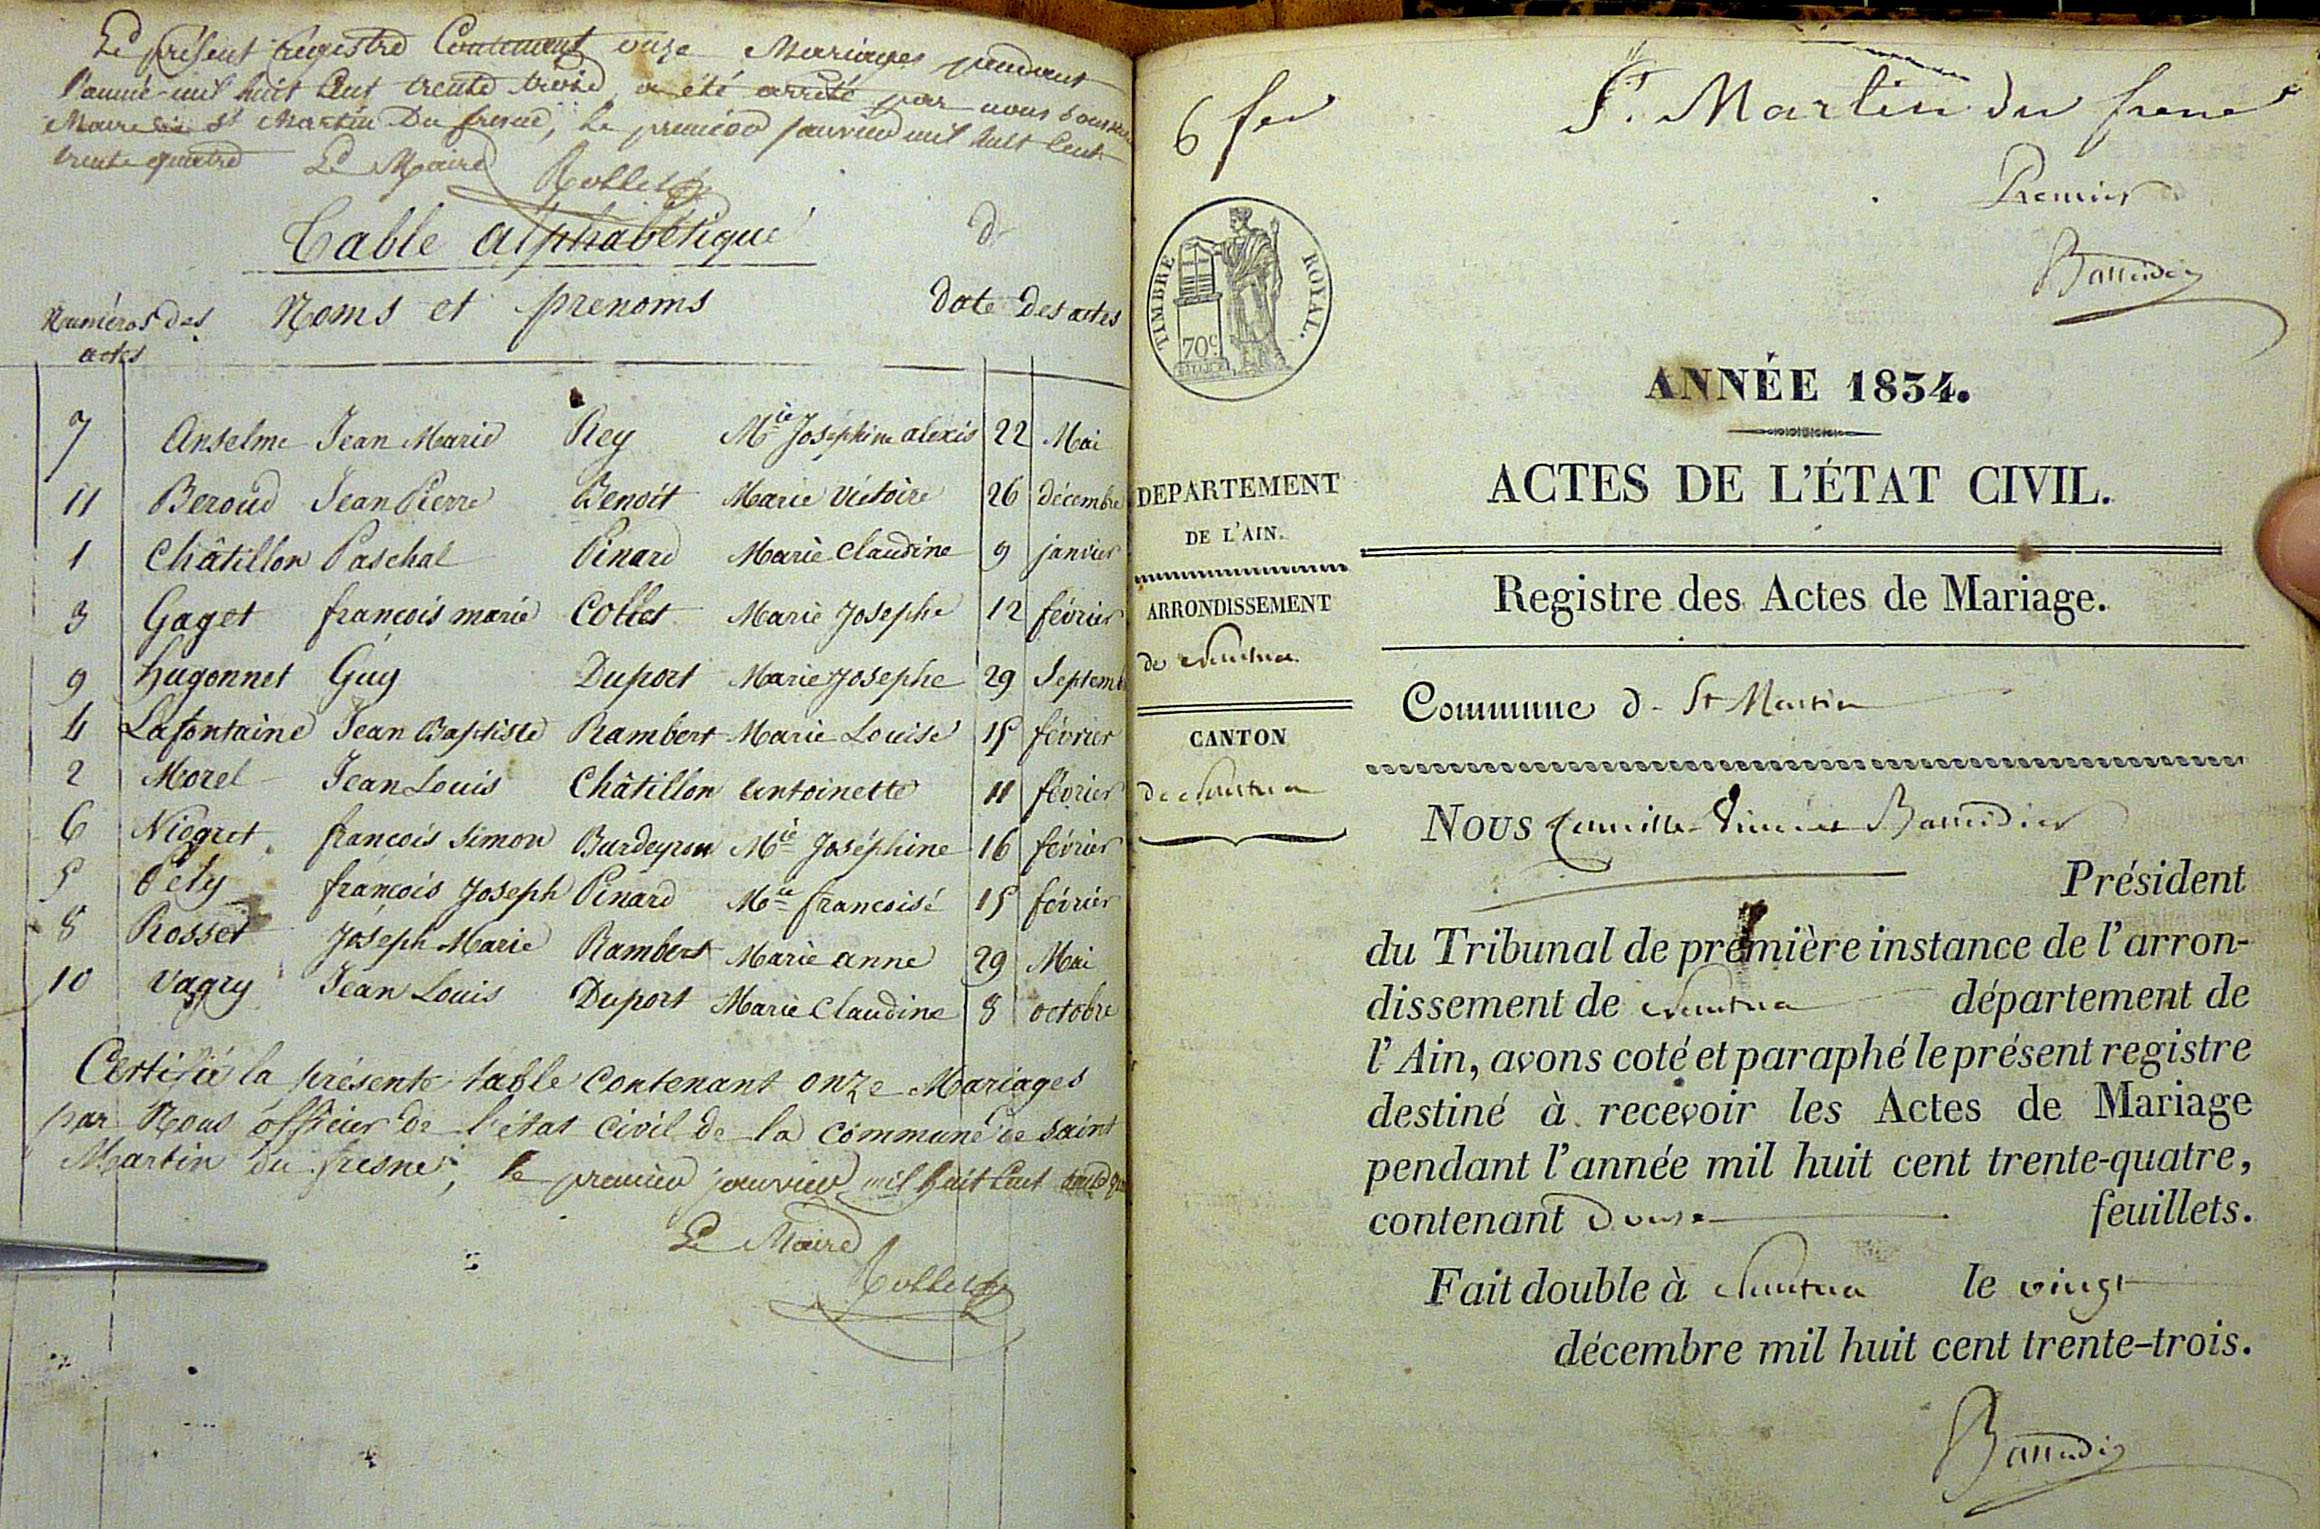 Le présent registre Contenant onze Mariages pendant
l'année mil huit Cent trente trois, a été arrêté par nous
Maire de St Martin Du fresne, le premier janvier mil huit Cent
trente quatre Le Maire
Table alphabétique d
Numéros des actes Noms et prenoms date des actes
7 Anselme Jean Marie Rey Mie Joséphine alexis 22 Mai
11 Beroud Jean Pierre Benoit Marie Victoire 26 décembre
1 Châtillon Paschal Pinard Marie Claudine 9 janvier
3 Gaget françois marie Collet Marie Josephe 12 février
9 hugonnet Guy Duport Marie Josephe 29 Septemb
4 Lafontaine Jean Baptiste Rambert Marie Louise 15 février
2 Morel Jean Louis Châtillon Antoinette 11 février
6 Niogret françois Simon Burdeyron Mie Joséphine 16 février
5 Pety françois Joseph Pinard Mie françoise 15 février
8 Rosset Joseph Marie Rambert Marie anne 29 Mai
10 Vagry Jean Louis Duport Marie Claudine 8 octobre
Certifié la présente table contenant onze Mariages
par Nous officier de l'état civil de la commune de saint
Martin du fresne, le premier janvier mil huit Cent
Le Maire
6 fer
St. Martin du frene
Premier
TIMBRE ROYAL.
70c
ANNÉE 1834.
ACTES DE L'ÉTAT CIVIL.
DEPARTEMENT
DE L'AIN.
ARRONDISSEMENT
de Nantua
CANTON
de Nantua
Registre des Actes de Mariage.
Commune d- St Martin
Nous Camille
Président
du Tribunal de première instance de l'arron-
dissement de Nantua département de
l'Ain, avons coté et paraphé le présent registre
destiné à recevoir les Actes de Mariage
pendant l'année mil huit cent trente-quatre,
contenant Douze feuillets.
Fait double à Nantua le vingt
décembre mil huit cent trente-trois.